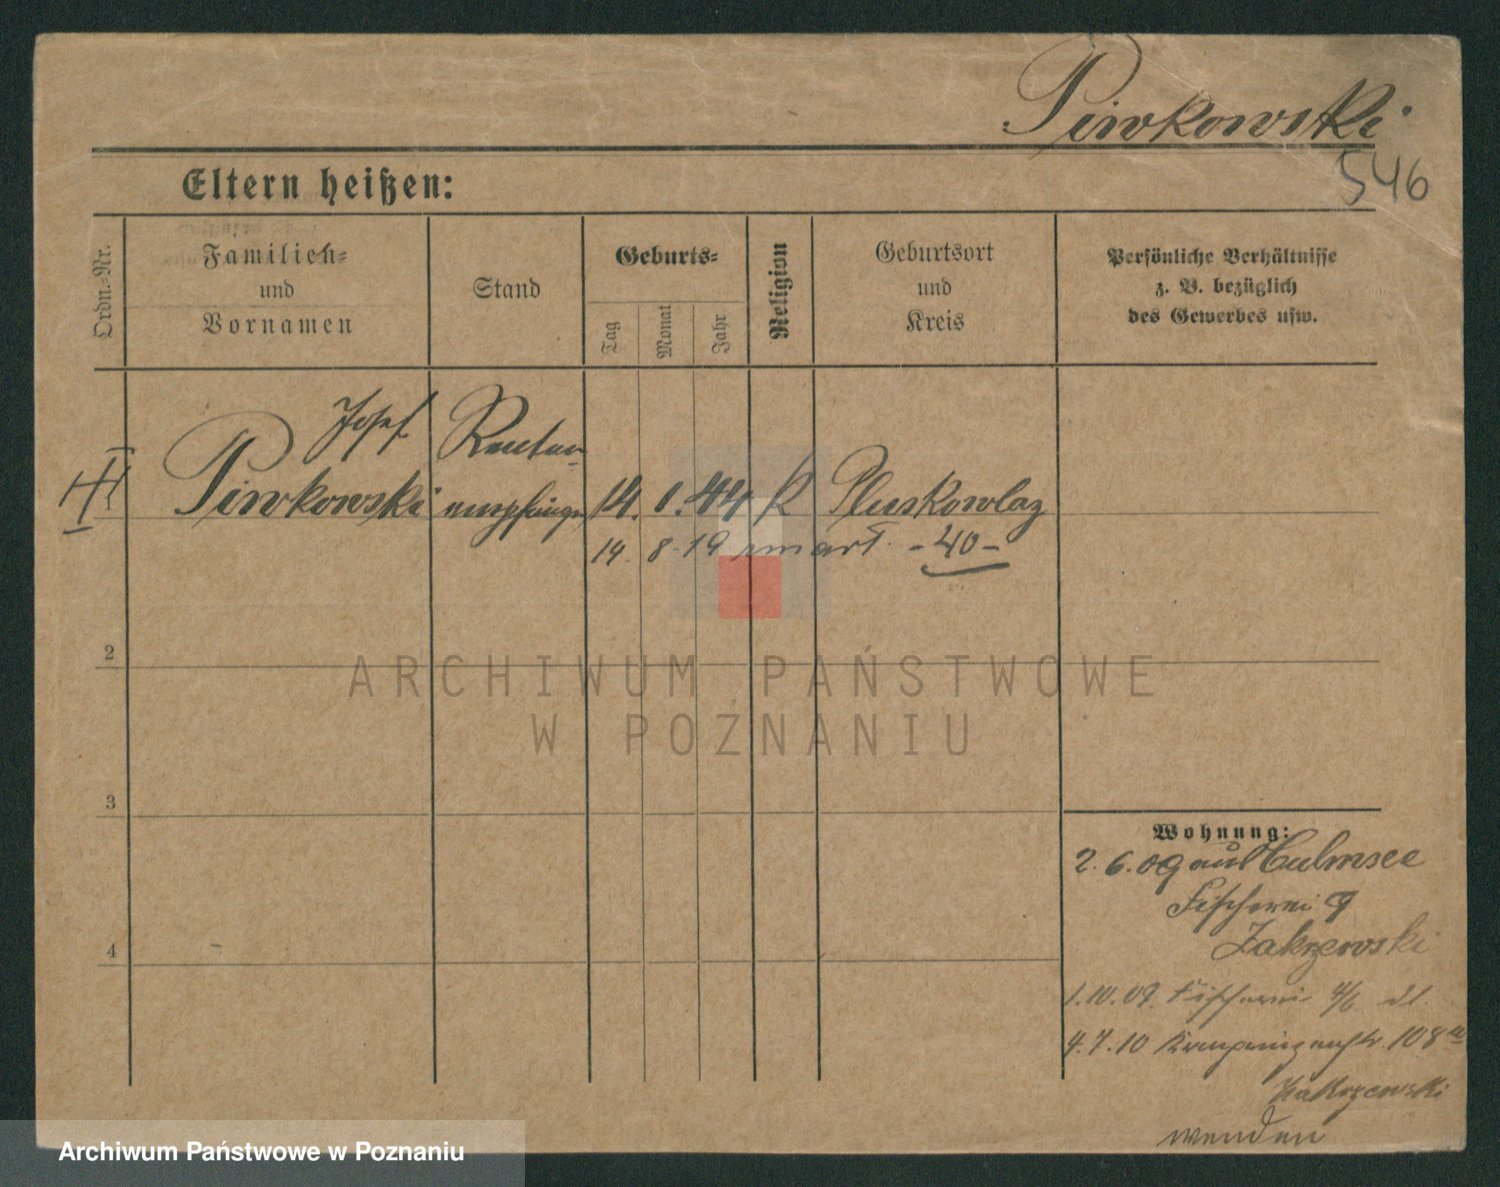 Piwkowski
546
Eltern heißen:
Ordn.-Nr.
Familien-
und
Vornamen
Stand
Geburts-
Tag
Monat
Jahr
Religion
Geburtsort
und
Kreis
Persönliche Verhältnisse
z. B. bezüglich
des Gewerbes usw.
Josef Renten-
Piwkowski empfänger 14. 1. 44 K Pluskowlaz
14. 8. 19 -40-
2
3
4
ARCHIWUM PAŃSTWOWE
W POZNANIU
Wohnung:
2. 6. 09 aus Culmsee
Fischerei 9
Zakrzewski
1.10.09. Fischerei 4/6
4.7.10 Kronprinzenstr. 108
Zakrzewski
wenden
Archiwum Państwowe w Poznaniu